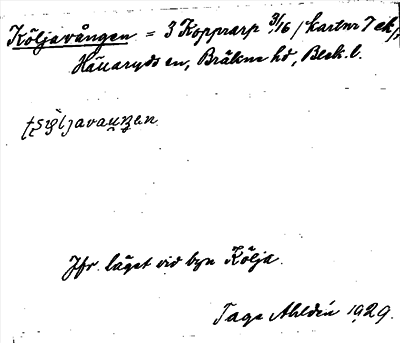 Köljavången = 3 Kopprarp 3/16 / kartnr 7 ek/
Hällaryds sn, Bräkne hd, Blek. l.
Jfr. läget vid byn Kölja.
Tage Ahldén 1929.